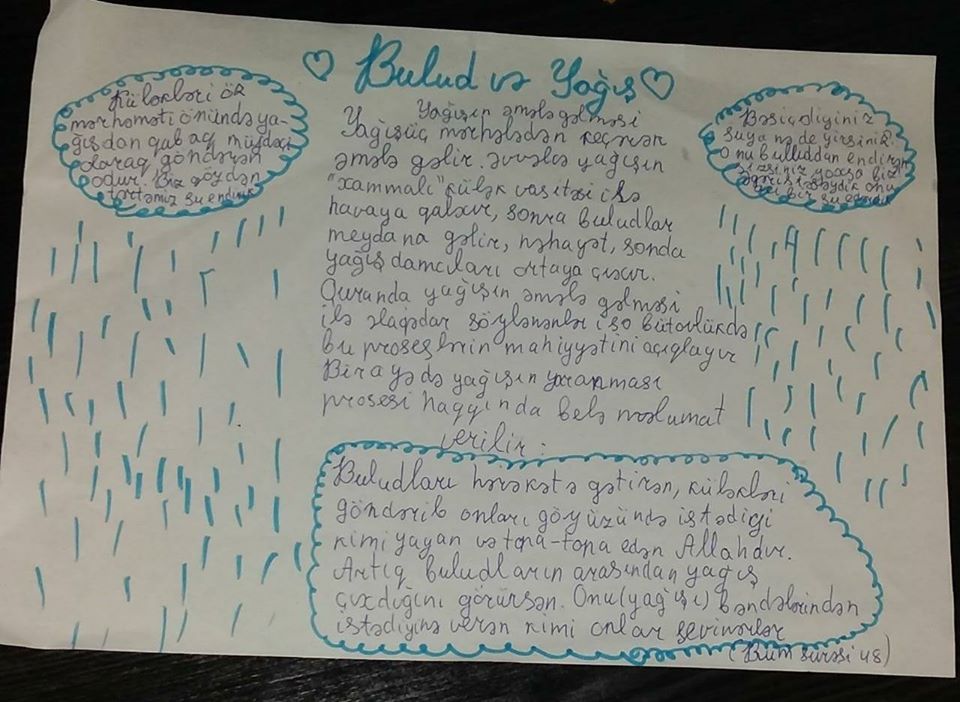 Bulud və Yağış
Küləkləri öz
mərhəməti önündə ya-
ğışdan qabaq müjdəçi
olaraq göndərən
odur. Biz göydən
tərtəmiz su endirik
Bəs içdiyiniz
suya nə deyirsiniz?
Onu bulluddan endirən
sizsiniz yoxsa biz
əgər istəsəydik onu
bir su edərdik
Yağışın əmələ gəlməsi
Yağış üç mərhələdən keçərək
əmələ gəlir. əvvəlcə yağışın
"xammalı" külək vasitəsi ilə
havaya qalxır, sonra buludlar
meydana gəlir, nəhayət, sonda
yağış damcıları ortaya çıxır.
Quranda yağışın əmələ gəlməsi
ilə əlaqədar söylənənlər isə bütövlükdə
bu proseslərin mahiyyətini açıqlayır
Bir ayədə yağışın yaranması
prosesi haqqında belə məlumat
verilir:
Buludları hərəkətə gətirən, küləkləri
göndərib onları göy üzündə istədiyi
kimi yayan və topa-topa edən Allahdır.
Artıq buludların arasından yağış
çıxdığını görürsən. Onu (yağışı) bəndələrindən
istədiyinə verən kimi onlar sevinərlər
(Rum surəsi 48)